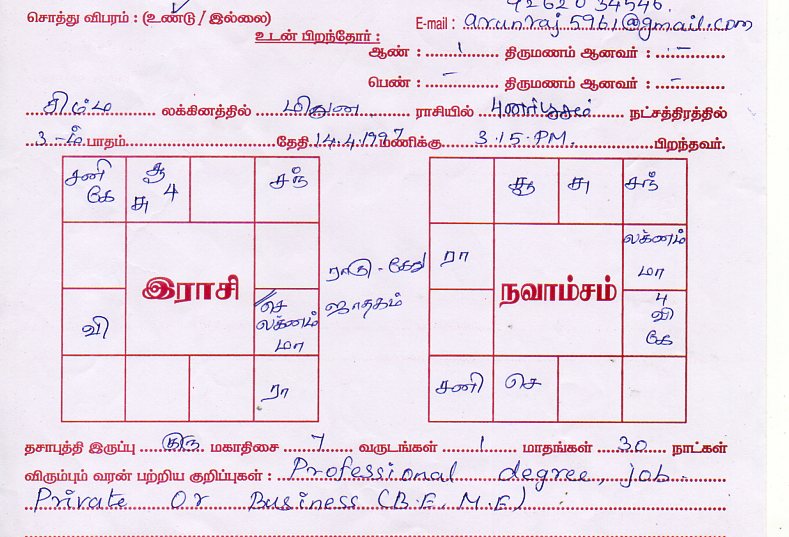 92620 34546.
சொத்து விபரம் : (உண்டு / இல்லை) E-mail : arunraj5961@gmail.com
உடன் பிறந்தோர் :
ஆண் : 1 திருமணம் ஆனவர் : -
பெண் : - திருமணம் ஆனவர் : -
சிம்ம லக்கினத்தில் மிதுன ராசியில் புனர்பூசம் நட்சத்திரத்தில்
3-ம் பாதம் தேதி 14.4.1997 மணிக்கு 3.15.PM. பிறந்தவர்.
சனி கே
சூ சு 4
சந்
இராசி
வி
செ லக்ணம் மா
ரா
ராகு - கேது
ஜாதகம்
சூ
சு
சந்
ரா
நவாம்சம்
லக்ணம் மா
4 வி கே
சனி
செ
தசாபுத்தி இருப்பு குரு மகாதிசை 7 வருடங்கள் 1 மாதங்கள் 30 நாட்கள்
விரும்பும் வரன் பற்றிய குறிப்புகள் : Professional degree, job
Private or Business (B.E, M.E)